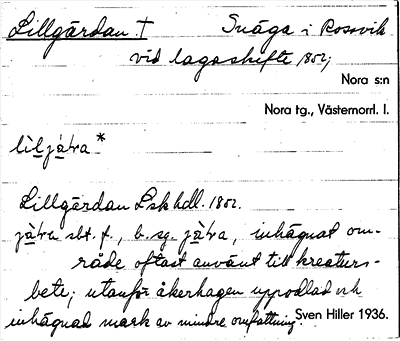 Lillgärdan † Suåga i Rossvik
vid lagaskifte 1802;
Nora s:n
Nora tg., Västernorrl. l.
Lillgärdan Lsk hdl. 1802.
sbt. f., b. sg. inhägnat om-
råde oftast använt till kreaturs-
bete; utanför åkerhagen uppodlad och
inhägnad mark av mindre omfattning.
Sven Hiller 1936.